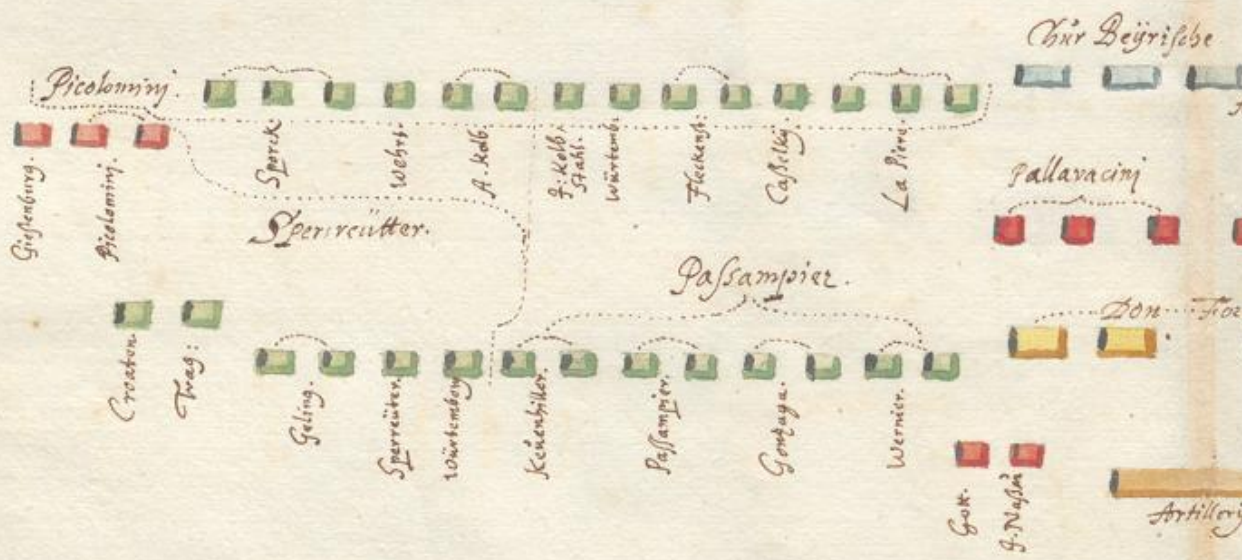 Picolominj.
Chür Beÿrische
Gießenburg.
Picolominj.
Sporck.
Wehrt.
A. Kolb.
J: Kolb.
Stahl.
Würtemb:
Fleckenst:
Caßelky.
La Piere.
Pallavacinj
Sperreütter.
Paßampier.
Don
Croaten.
Trag:
Geling.
Sperreüter.
Würtemberg
Keüenhiller.
Paßampier.
Gonzaga.
Wernier.
J. Naßau
Artillerij